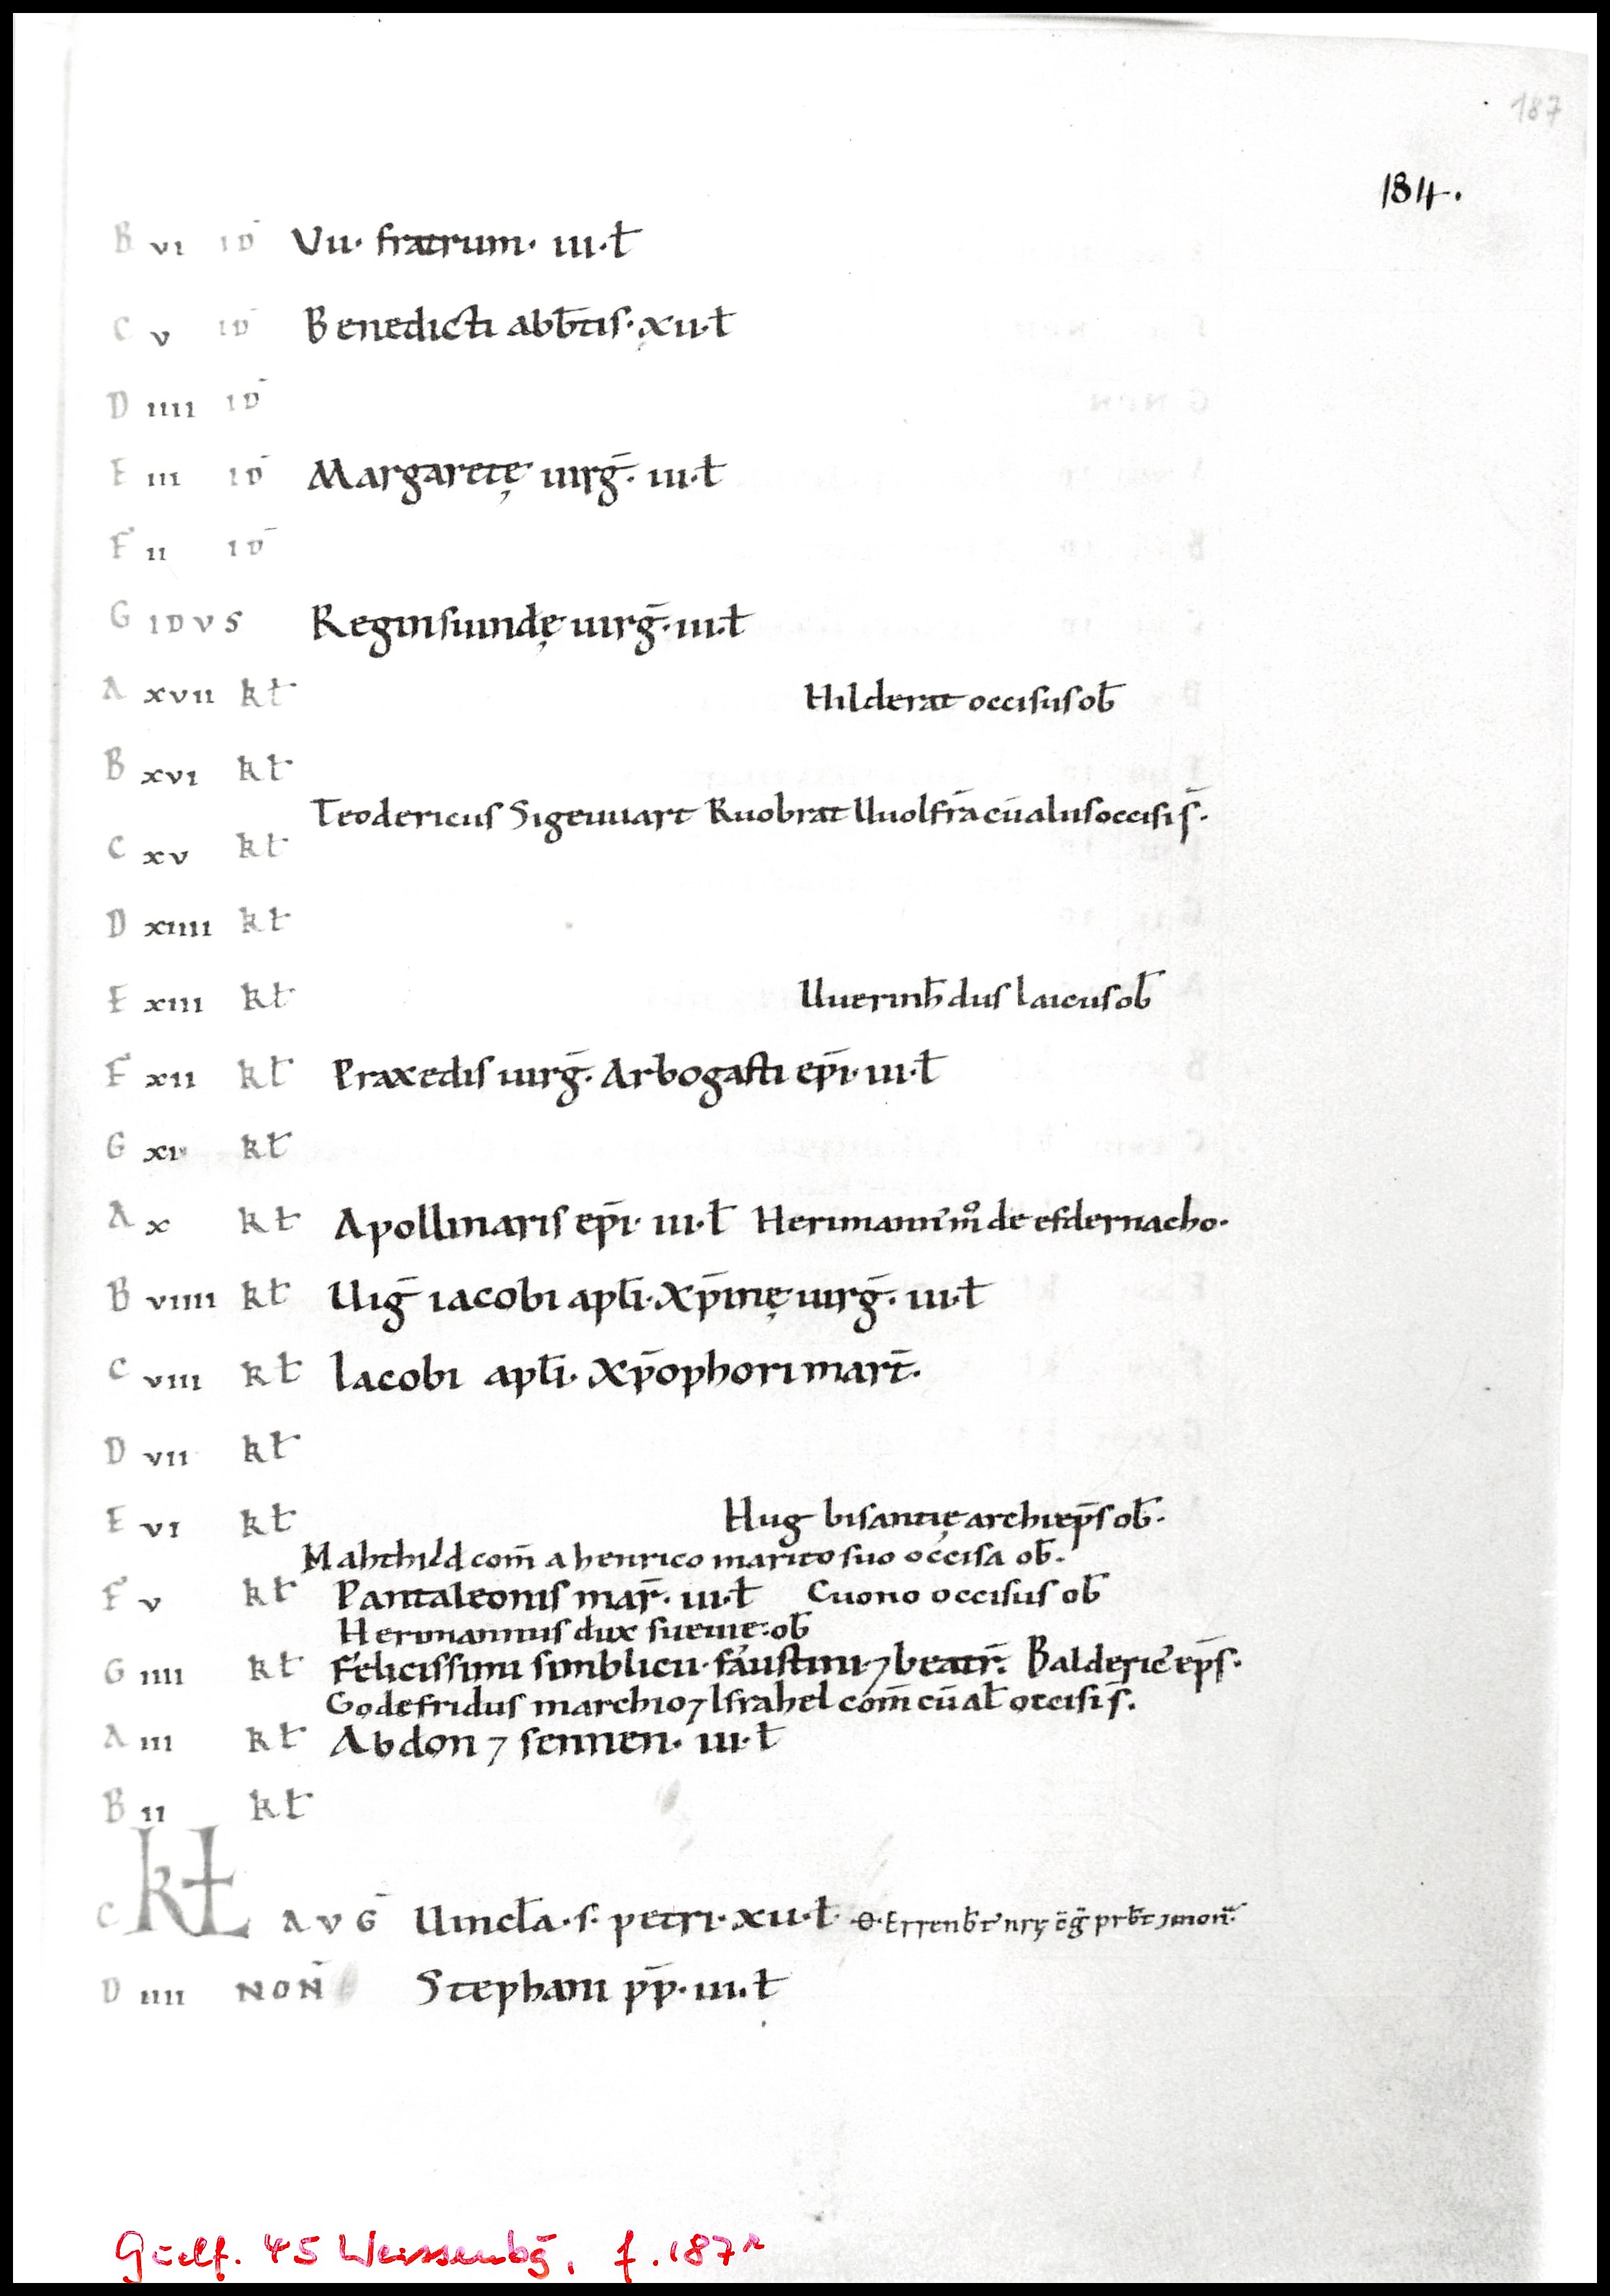 187
184.
B vi id̄ Vii· fratrum· iii·ł
C v id̄ Benedicti abb̄tis· xii·ł
D iiii id̄
E iii id̄ Margaretę uirḡ· iii·ł
F ii id̄
G idvs Reginsuindę uirḡ· iii·ł
A xvii kł Hilderat occisus ob̄
B xvi kł
Teodericus Sigeuuart Ruobrat Uuolfrā cū aliis occisi s̄·
C xv kł
D xiiii kł
E xiii kł Uuerinh̄dus laicus ob̄
F xii kł Praxedis uirḡ· Arbogasti ep̄i· iii·ł
G xi kł
A x kł Apollinaris ep̄i· iii·ł Herimann' m̊ de efdernacho·
B viiii kł Uiḡ iacobi apłi· Xp̄inę uirḡ· iii·ł
C viii kł Iacobi apłi· Xp̄ophori mart̄·
D vii kł
E vi kł Hug bisantię archiep̄s ob̄·
Mahthild com̄ a henrico marito suo occisa ob̄·
F v kł Pantaleonis mar̄· iii·ł Cuono occisus ob̄
Herimannus dux sueuie· ob̄
G iiii kł Felicissimi simblicii· faustini· ⁊ beatr̄· Balderic' ep̄s·
Godefridus marchio ⁊ Israhel com̄ cū ał occisi s̄·
A iii kł Abdon ⁊ sennen· iii·ł
B ii kł
C kł avḡ Uincła· s· petri· xii·ł
D iiii non̄ Stephani pp̄· iii·ł
Guelf. 45 Weissenbg, f. 187r